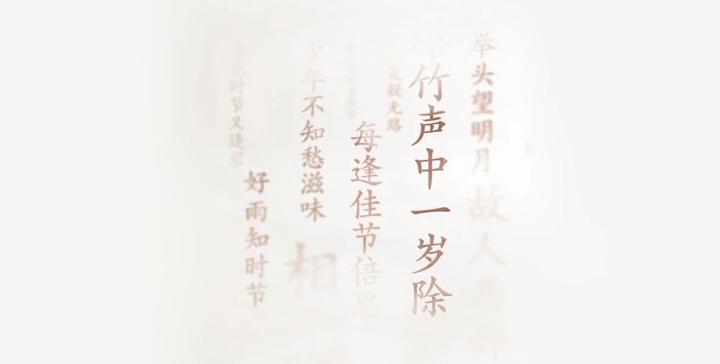 举头望明月
故人
爆竹声中一岁除
复疑无路
每逢佳节倍思
少年不知愁滋味
相
好雨知时节
花时节又逢君